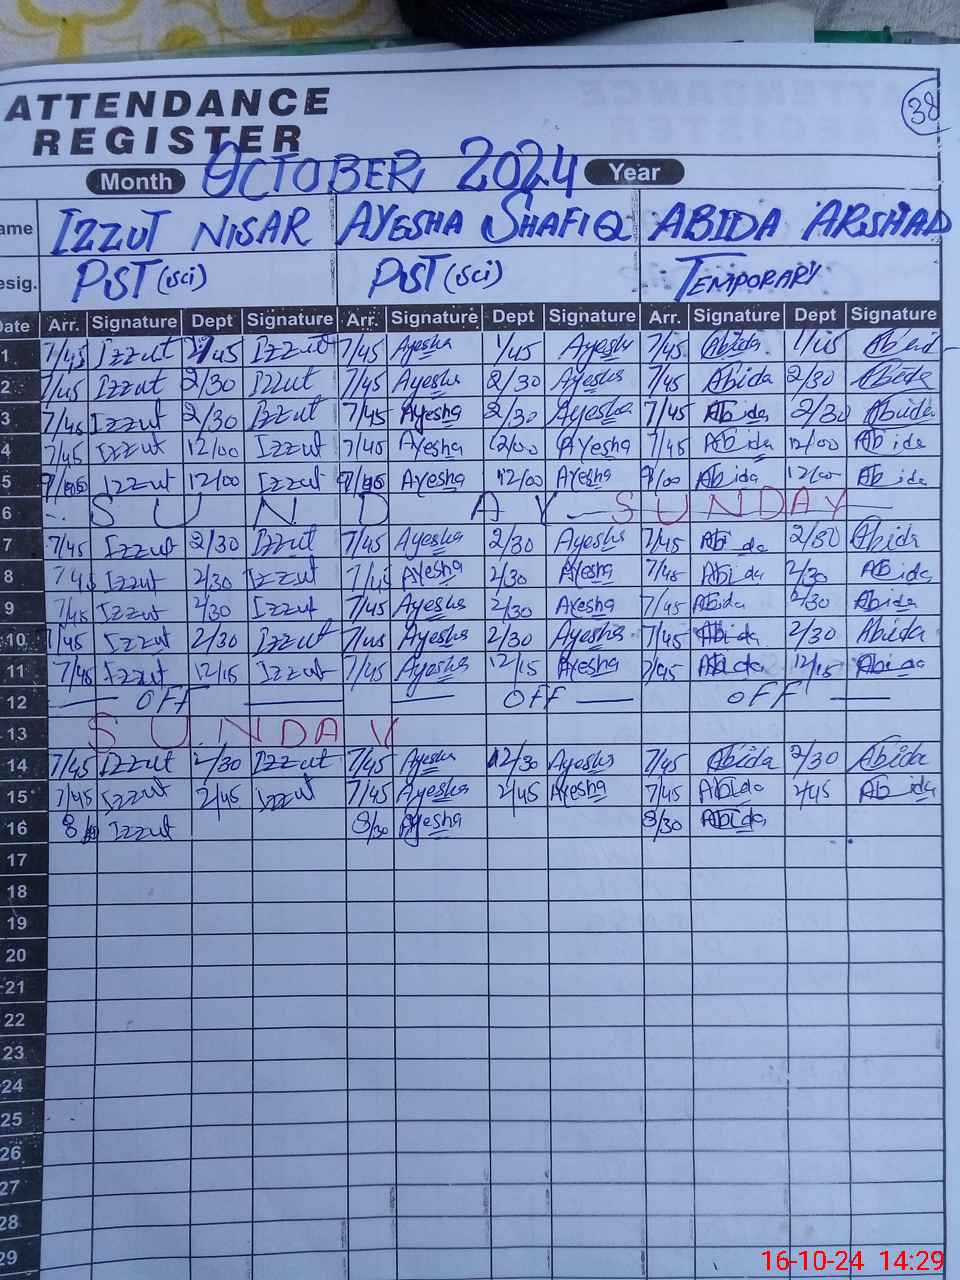 38
ATTENDANCE
REGISTER
Month OCTOBER, 2024 Year
ame IZZUT NISAR AYESHA SHAFIQ ABIDA ARSHAD
esig. PST (sci) PST (sci) TEMPORARY
Date Arr. Signature Dept Signature Arr. Signature Dept Signature Arr. Signature Dept Signature
1 7/45 Izzut 45 Izzut 7/45 Ayesha 1/45 Ayesha 7/45 Abida Abid
2 7/45 Izzut 2/30 Izzut 7/45 Ayesha 2/30 Ayesha 7/45 Abida 2/30 Abida
3 7/45 Izzut 2/30 Izzut 7/45 Ayesha 2/30 Ayesha 7/45 Abida 2/30 Abida
4 7/45 Izzut 12/00 Izzut 7/45 Ayesha 12/00 Ayesha 7/45 Abida 12/00 Abida
5 Izzut 12/00 Izzut Ayesha 12/00 Ayesha Abida 12/00 Abida
6 SUNDAY SUNDAY
7 7/45 Izzut 2/30 Izzut 7/45 Ayesha 2/30 Ayesha 7/45 Abida 2/30 Abida
8 7/45 Izzut 2/30 Izzut 7/45 Ayesha 2/30 Ayesha 7/45 Abida 2/30 Abida
9 7/45 Izzut 2/30 Izzut 7/45 Ayesha 2/30 Ayesha 7/45 Abida 2/30 Abida
10 7/45 Izzut 2/30 Izzut 7/45 Ayesha 2/30 Ayesha 7/45 Abida 2/30 Abida
11 7/45 Izzut 12/15 Izzut 7/45 Ayesha 12/15 Ayesha 7/45 Abida 12/15 Abida
12 OFF OFF OFF
13 SUNDAY
14 7/45 Izzut 2/30 Izzut 7/45 Ayesha 2/30 Ayesha 7/45 Abida 2/30 Abida
15 7/45 Izzut 2/45 Izzut 7/45 Ayesha 2/45 Ayesha 7/45 Abida 2/45 Abida
16 8/ Izzut 8/30 Ayesha 8/30 Abida
17
18
19
20
21
22
23
24
25
26
27
28
29
16-10-24 14:29